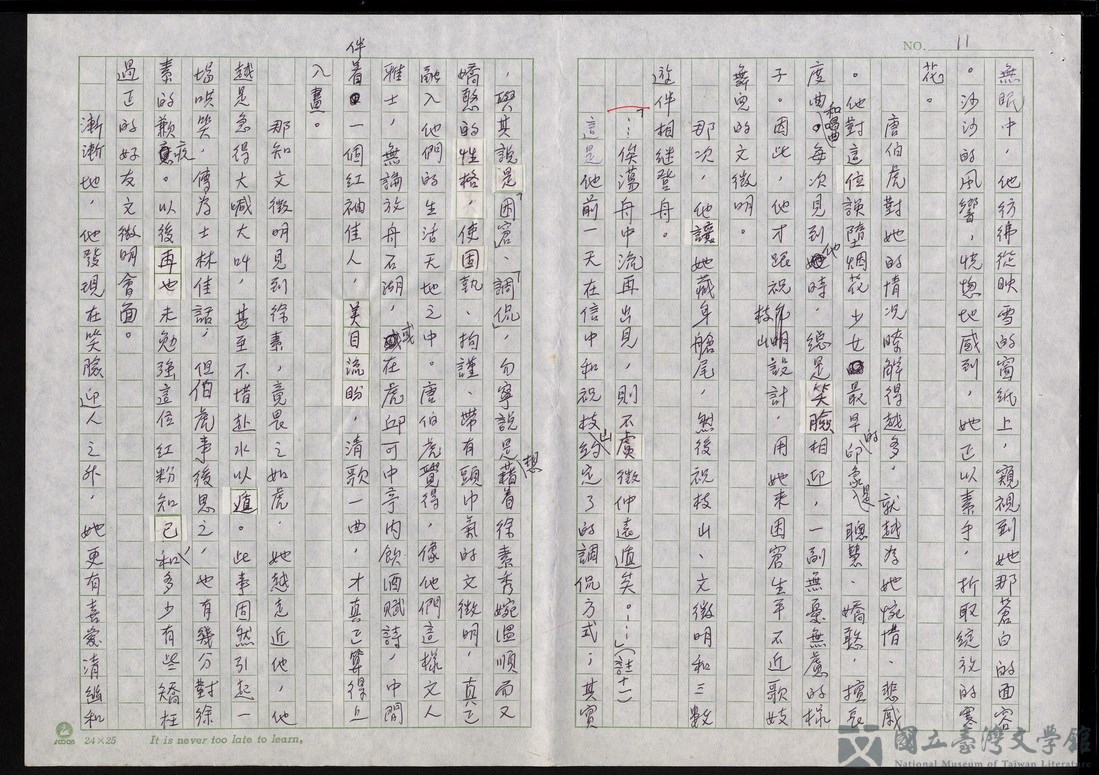 NO. 11
無眠中，他彷彿從映雪的窗紙上，窺視到她那蒼白的面容
。沙沙的風響，恍惚地感到，她正以素手，折取綻放的寒
花。
唐伯虎對她的情況瞭解得越多，就越為她惋惜、悲感
。他對這位誤墮烟花少女最早的印象是聰慧、嬌憨，擅長
度曲和唱曲。每次見到他時，總是笑臉相迎，一副無憂無慮的樣
子。因此，他才跟祝枝山設計，用她來困窘生平不近歌妓
舞臾的文徵明。
那次，他讓她藏身艙尾，然後祝枝山、文徵明和三數
遊伴相繼登舟。
「…俟蕩舟中流再出見，則不虞徵仲遠遁矣。…」（註十一）
這是他前一天在信中和祝枝山約定了的調侃方式；其實
，與其說是「困窘」、「調侃」，勿寧說是想藉着徐素秀婉溫順而又
嬌憨的性格，使固執、拘謹、帶有頭巾氣的文徵明，真正
融入他們的生活天地之中。唐伯虎覺得，像他們這樣文人
雅士，無論放舟石湖，或在虎邱可中亭內飲酒賦詩，中間
伴着一個紅袖佳人，美目流盼，清歌一曲，才真正算得上
入畫。
那知文徵明見到徐素，竟畏之如虎。她越走近他，他
越是急得大喊大叫，甚至不惜赴水以遁。此事固然引起一
場哄笑，傳為士林佳話，但伯虎事後思之，也有幾分對徐
素的歉疚。以後再也未勉強這位紅粉知己和多少有些矯枉
過正的好友文徵明會面。
漸漸地，他發現在笑臉迎人之外，她更有喜愛清幽和
24×25 It is never too late to learn,
國立臺灣文學館
National Museum of Taiwan Literature